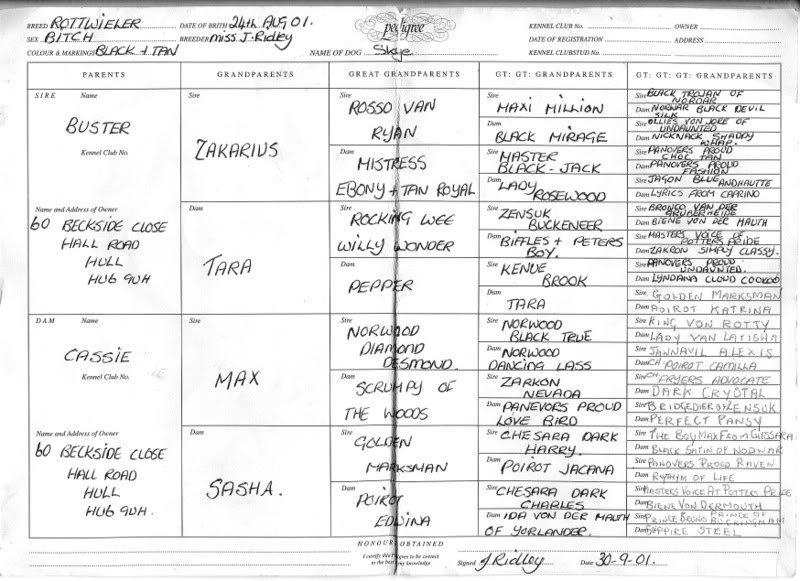 BREED ROTTWIELER DATE OF BIRTH 24th AUG 01. pedigree KENNEL CLUB No. OWNER
SEX BITCH BREEDER miss J. Ridley DATE OF REGISTRATION ADDRESS
COLOUR & MARKINGS BLACK + TAN NAME OF DOG Skye KENNEL CLUBSTUD No.
PARENTS GRANDPARENTS GREAT GRANDPARENTS GT: GT: GRANDPARENTS GT: GT: GT: GRANDPARENTS
SIRE Name
BUSTER
Kennel Club No.
Name and Address of Owner
60 BECKSIDE CLOSE
HALL ROAD
HULL
HU6 9UH
DAM Name
CASSIE
Kennel Club No.
Name and Address of Owner
60 BECKSIDE CLOSE
HALL ROAD
HULL
HU6 9UH.
Sire
ZAKARIUS
Dam
TARA
Sire
MAX
Dam
SASHA.
Sire
ROSSO VAN
RYAN
Dam
MISTRESS
EBONY + TAN ROYAL
Sire
ROCKING WEE
WILLY WONDER
Dam
PEPPER
Sire
NORWOOD
DIAMOND
DESMOND.
Dam
SCRUMPY OF
THE WOODS
Sire
GOLDEN
MARKSMAN
Dam
POIROT
EDWINA
Sire
MAXI MILLION
Dam
BLACK MIRAGE
Sire
MASTER
BLACK-JACK
Dam LADY
ROSEWOOD
Sire
ZENSUK
BUCKENEER
Dam BIFFLES + PETERS
BOY.
Sire
KENUE
BROOK
Dam
TARA
Sire
NORWOOD
BLACK TRUE
Dam NORWOOD
DANCING LASS
Sire
ZARKON
NEVADA
Dam PANEVORS PROUD
LOVE BIRD
Sire
CHESARA DARK
HARRY.
Dam
POIROT JACANA
Sire
CHESARA DARK
CHARLES
Dam IDA VON DER MAUTH
OF YORLANDER.
Sire BLACK TROJAN OF
NORDAR
Dam NORWAR BLACK DEVIL
SILK
Sire OLLIES VON JORE OF
UNDAUNTED
Dam NICKNACK SHADDY
WHAP.
Sire PANOVERS PROUD
CHOC TAN
Dam PANOVERS PROUD
FASHION
Sire JASON BLUE
ANDHAUTTE
Dam LYRICS FROM CAPRINO
Sire BRONCO VAN DER
GRUBERHEIDE
Dam BIENE VON DER MAUTH
Sire MASTERS VOICE OF
POTTERS PRIDE
Dam ZAKRON SIMPLY CLASSY.
Sire PANOVERS PROUD
UNDAUNTED.
Dam LYNDANA CLOUD COOKOO
Sire GOLDEN MARKSMAN
Dam POIROT KATRINA
Sire KING VON ROTTY
Dam LADY VAN LATISHA
Sire JANNAVIL ALEXIS
Dam CH POIROT CAMILLA
Sire CH FRYERS ADVOCATE
Dam DARK CRYSTAL
Sire BRIDGEDIER OF ZENSUK
Dam PERFECT PANSY
Sire THE BOY MAX FROM CHESSARA
Dam BLACK SATIN OF NODWAR
Sire PANOVERS PROUD RAVEN
Dam RYTHYM OF LIFE
Sire MASTERS VOICE AT POTTERS PRIDE
Dam BIENE VON DERMOUTH
Sire PRINCE BRUNO PRINCE OF
BUCKINGHAM
Dam STEEL
HONOURS OBTAINED
I certify this Pedigree to be correct
to the best of my knowledge
Signed J Ridley Date 30-9-01.